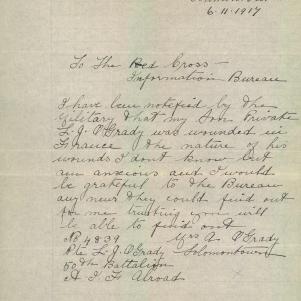 6-11-1917
To The Red Cross -
Information Bureau
I have been notefied by the
Military that my Son Private
L. J. O'Grady was wounded in
France the nature of his
wounds I dont know but
am anxious and I would
be grateful to the Bureau
any news they could find out
for me trusting you will
be able to find out
No 4839 Mrs A. O'Grady
Pte L. J. O'Grady - Solomontown
50th Battalion
A I F Abroad